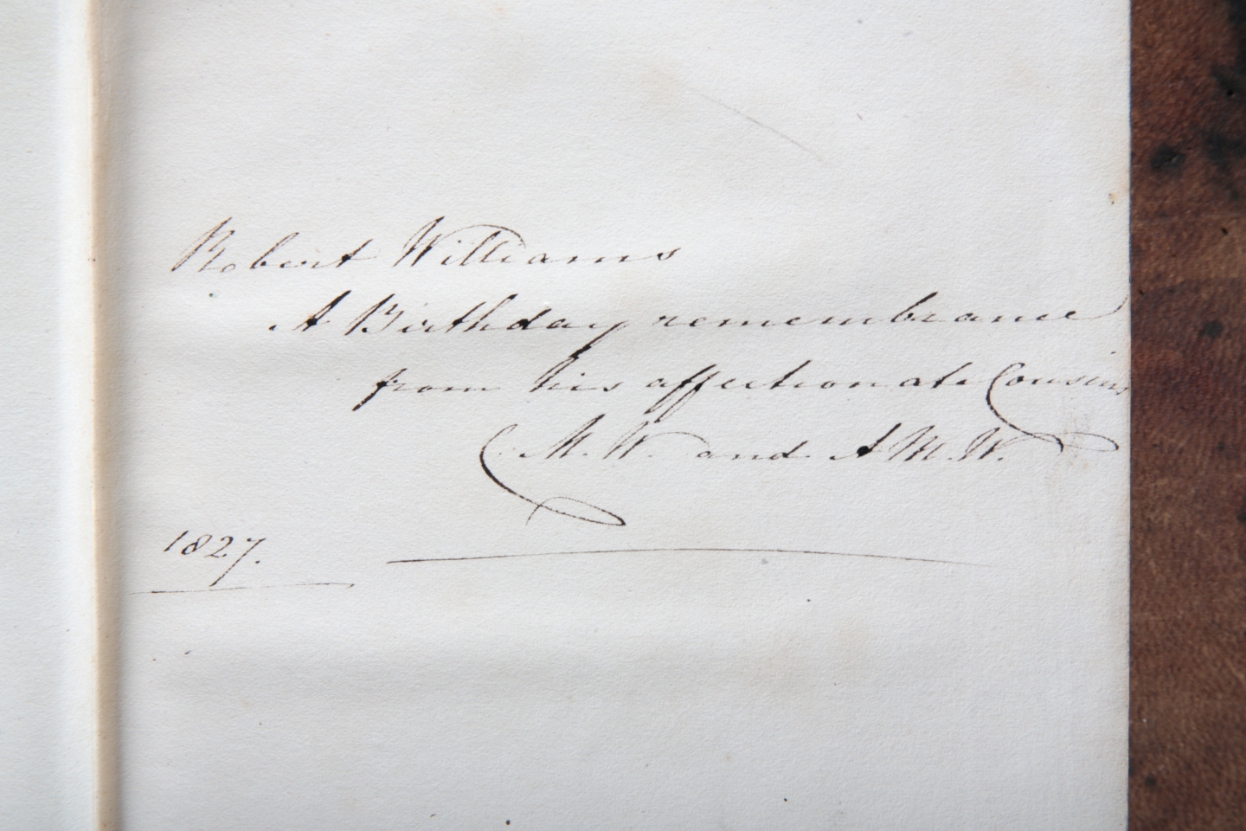 Robert Williams
A Birthday remembrance
from his affectionate Cousins
C. M. W. and A. M. W.
1827.